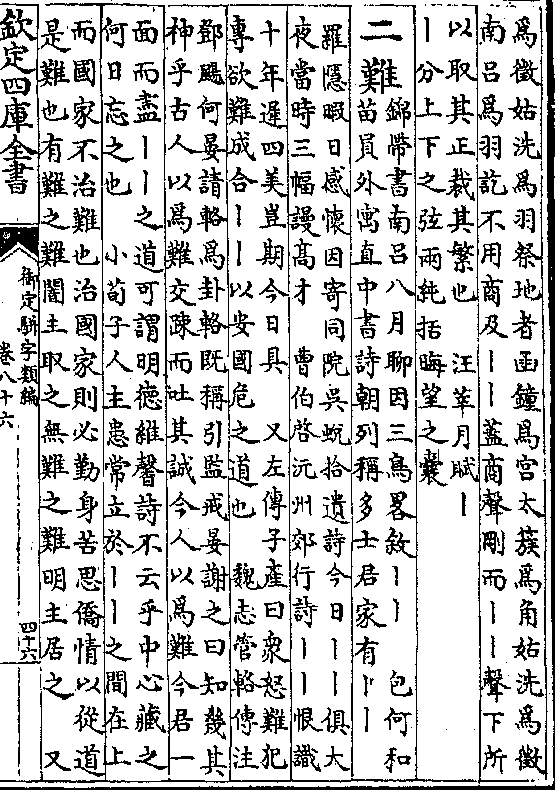 爲徵姑洗爲羽祭地者函鐘爲宫太簇爲角姑洗爲徵
南吕爲羽訖不用商及丨丨葢商聲剛而丨丨聲下所
以取其正裁其繁也　汪莘月賦丨
丨分上下之弦兩純括晦望之囊
二難
錦帶書南吕八月聊因三鳥畧敘丨丨　包何和
苗員外寓直中書詩朝列稱多士君家有丨丨
羅隱暇日感懷因寄同院吳蛻拾遺詩今日丨丨俱大
夜當時三幅謾髙才　曹伯啓沅州郊行詩丨丨恨識
十年遲四美豈期今日具　又左傳子產曰衆怒難犯
專欲難成合丨丨以安國危之道也　魏志管輅傳注
鄧颺何晏請輅爲卦輅既稱引監戒晏謝之曰知幾其
神乎古人以爲難交疎而吐其誠今人以爲難今君一
面而盡丨丨之道可謂明德維馨詩不云乎中心藏之
何日忘之也　小荀子人主患常立於丨丨之間在上
而國家不治難也治國家則必勤身苦思僑情以從道
是難也有難之難闇主取之無難之難明主居之　又
欽定四庫全書
御定駢字類編
卷八十六
四十六